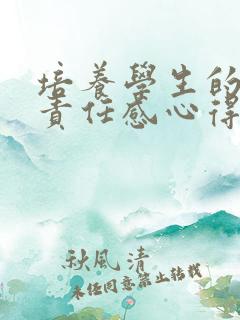 培養學生的
責任感心得
秋風清
未經同意禁止轉載